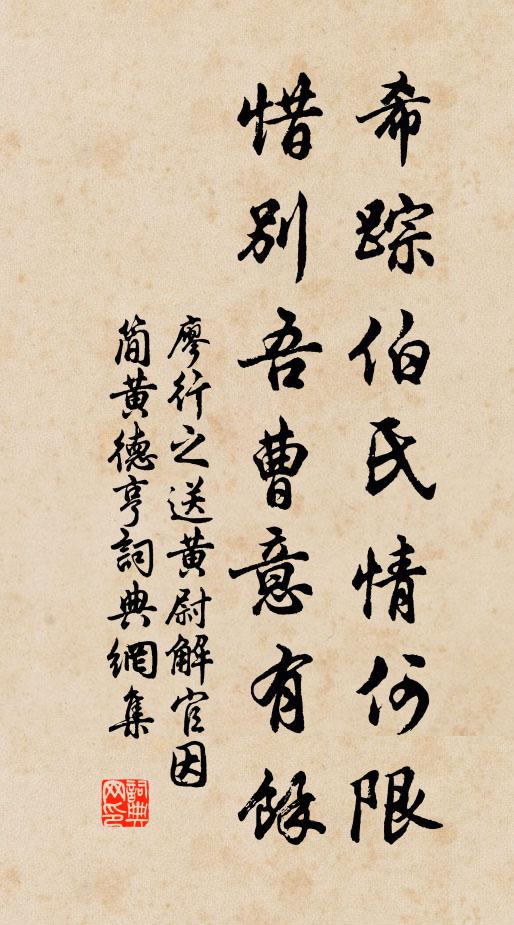 希踪伯氏情何限
惜別吾曹意有餘
廖行之送黄尉解官因
簡黄德亨詞典網集
詞典
网印